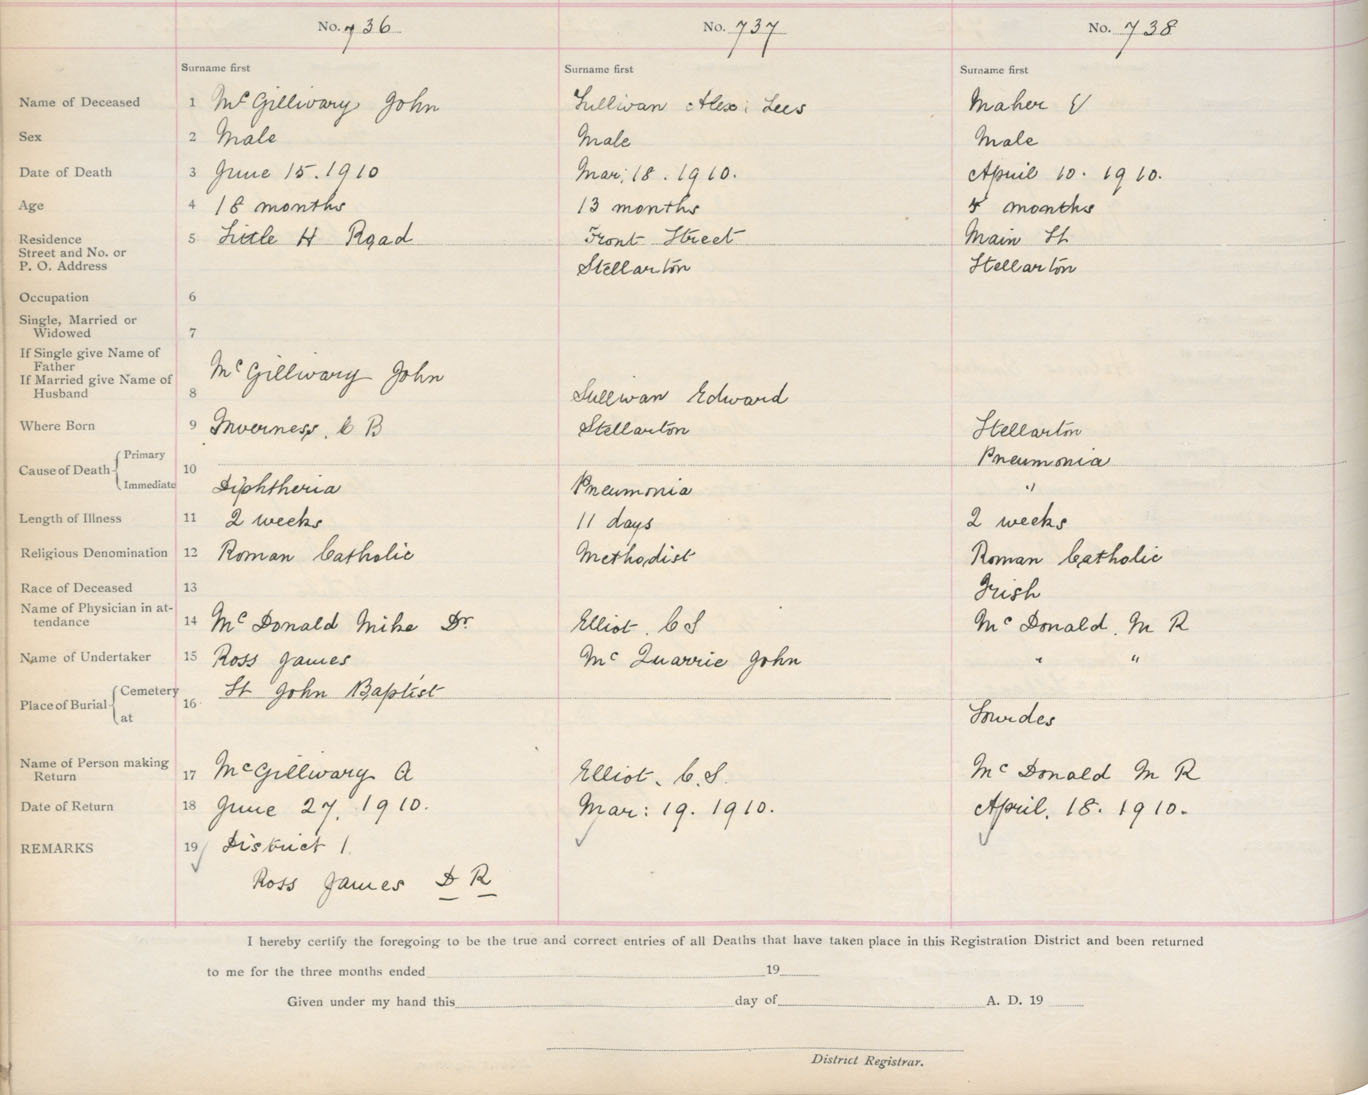 No. 736 No. 737 No. 738
Surname first Surname first Surname first
Name of Deceased 1 McGillivary John Sullivan Alex: Lees Maher E
Sex 2 Male Male Male
Date of Death 3 June 15. 1910 Mar: 18. 1910. April 10. 1910.
Age 4 18 months 13 months 5 months
Residence 5 Little H Road Front Street Main St
Street and No. or
P. O. Address Stellarton Stellarton
Occupation 6
Single, Married or
Widowed 7
If Single give Name of
Father
If Married give Name of McGillivary John
Husband 8 Sullivan Edward
Where Born 9 Inverness, C B Stellarton Stellarton
Cause of Death Primary 10 Pneumonia
Immediate Diphtheria Pneumonia "
Length of Illness 11 2 weeks 11 days 2 weeks
Religious Denomination 12 Roman Catholic Methodist Roman Catholic
Race of Deceased 13 Irish
Name of Physician in at-
tendance 14 McDonald Mike Dr. Elliot. C S McDonald. M R
Name of Undertaker 15 Ross James McQuarrie John " "
Place of Burial Cemetery 16 St John Baptist
at Lourdes
Name of Person making
Return 17 McGillivary A Elliot. C. S. McDonald M R
Date of Return 18 June 27. 1910. Mar: 19. 1910. April. 18. 1910.
REMARKS 19 District 1.
Ross James D R
I hereby certify the foregoing to be the true and correct entries of all Deaths that have taken place in this Registration District and been returned
to me for the three months ended 19
Given under my hand this day of A. D. 19
District Registrar.